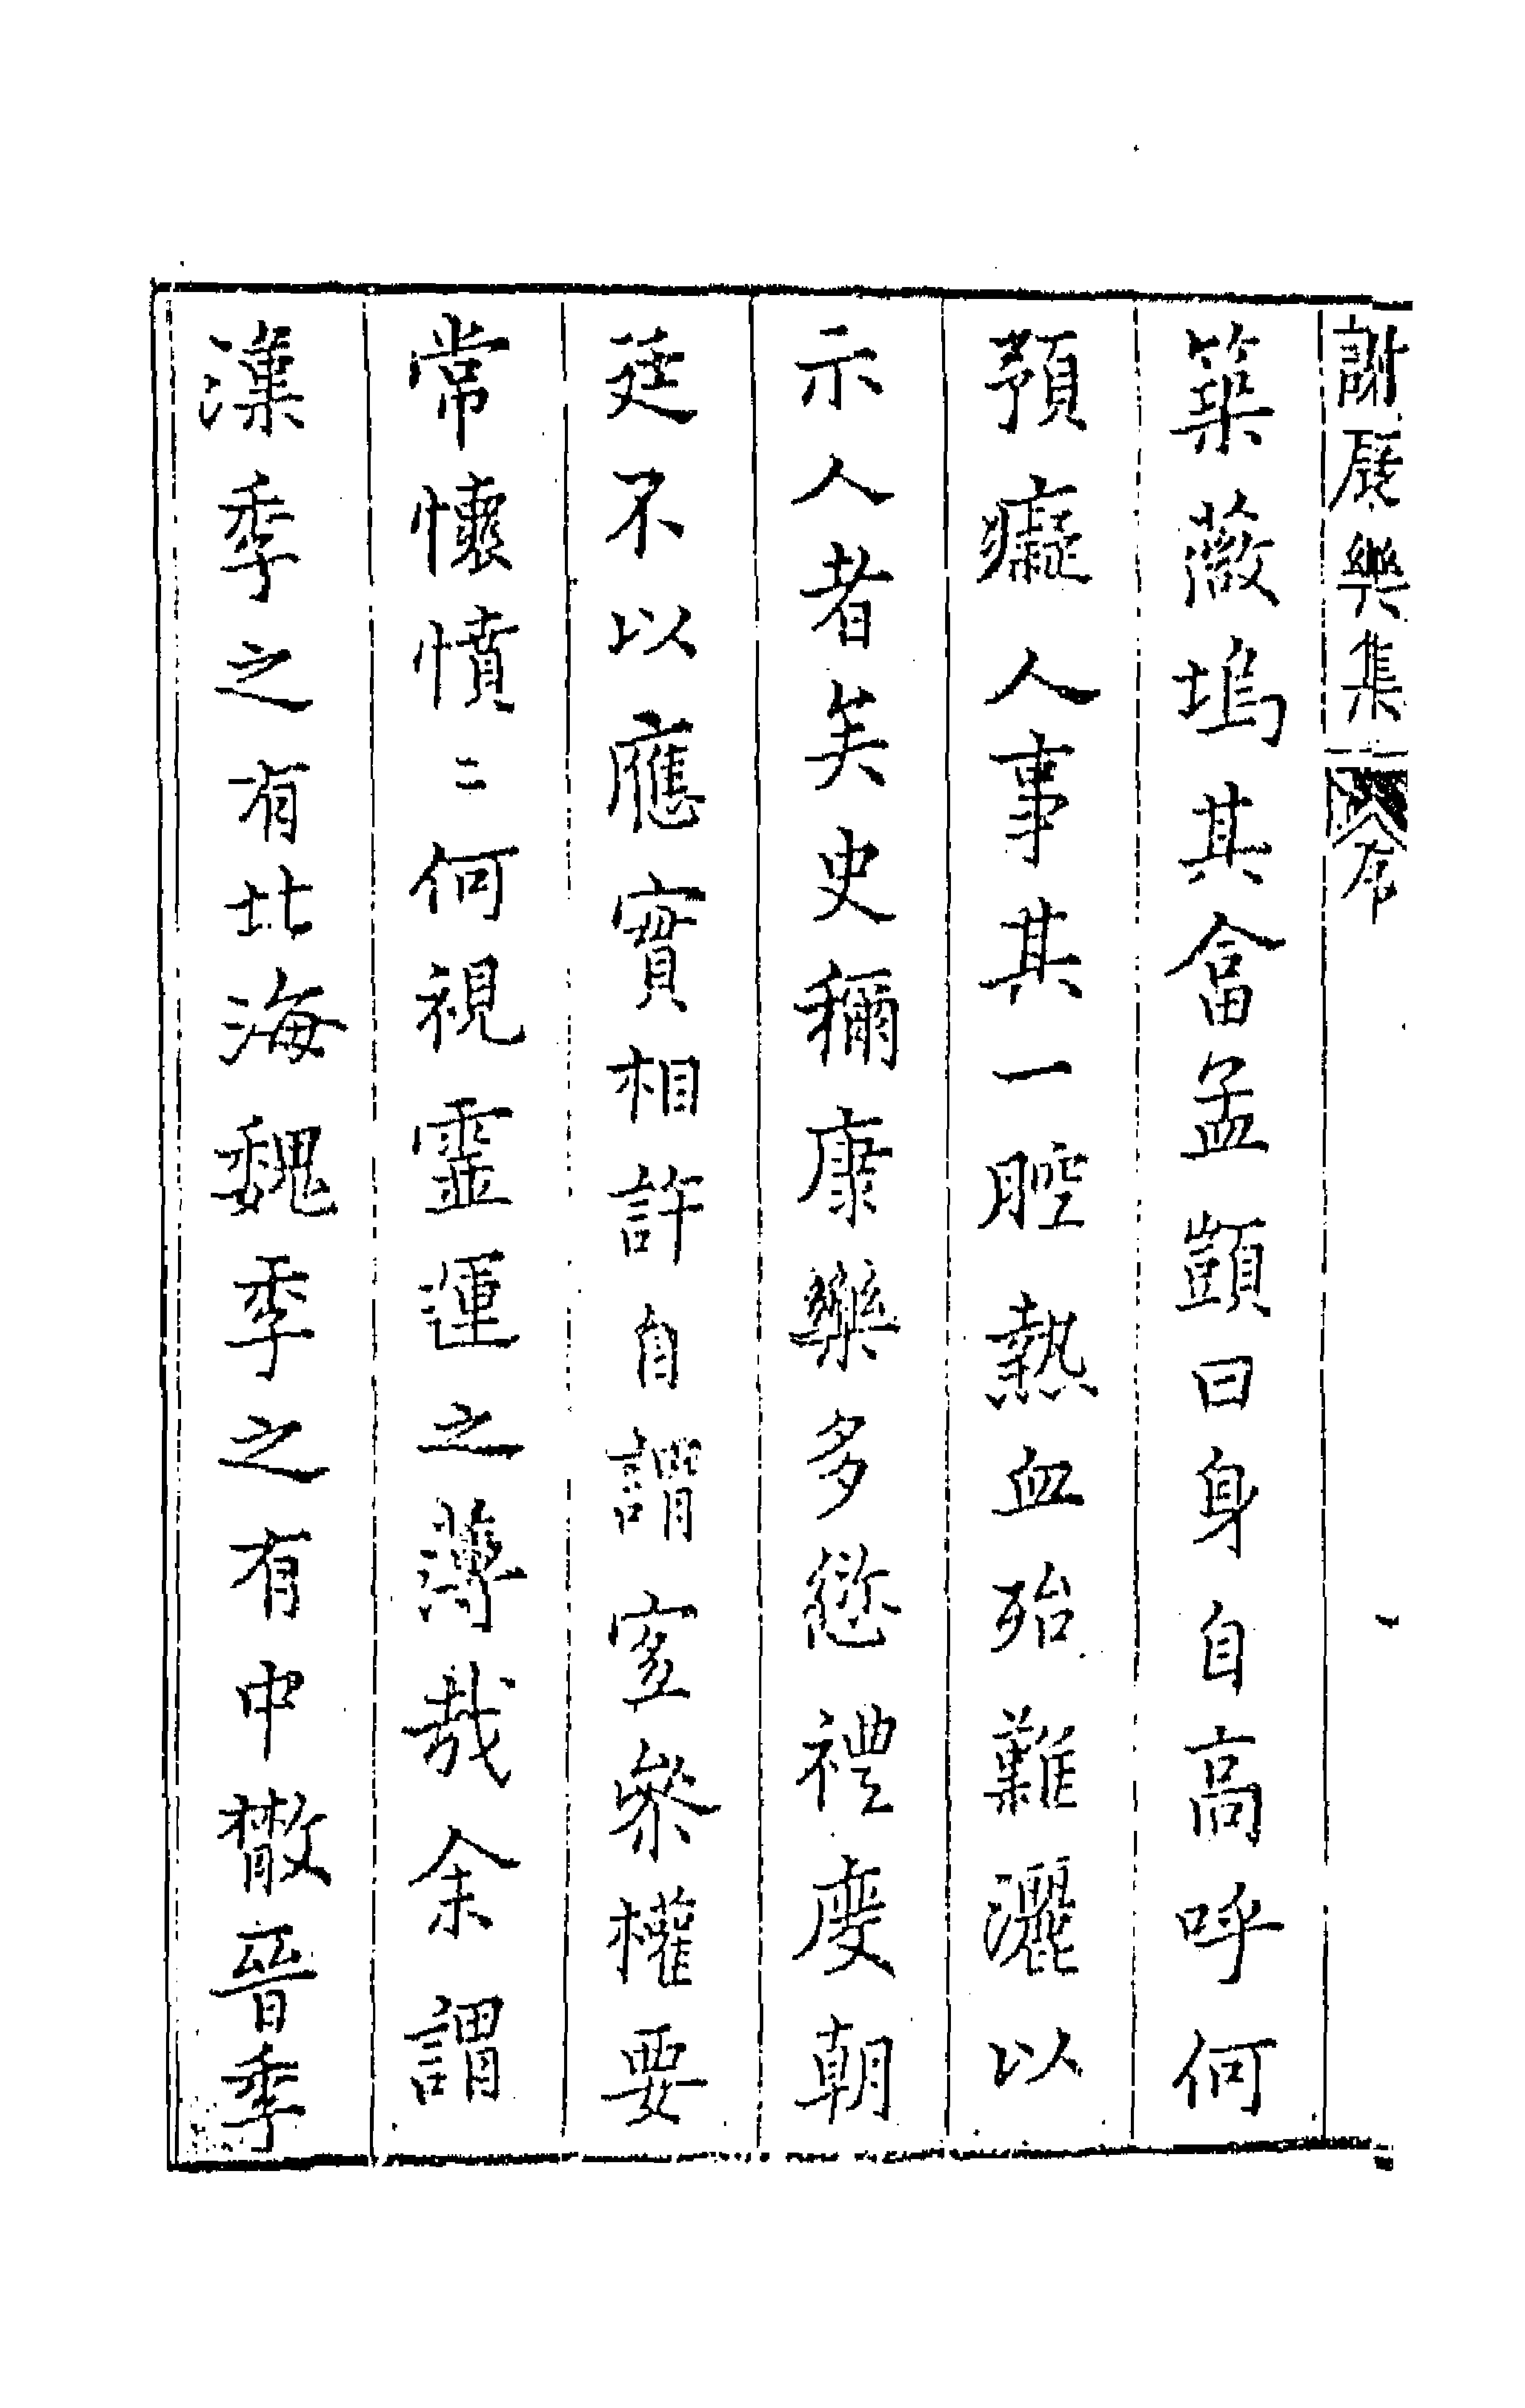 謝康樂集 序
築薇塢其畬孟顗曰身自高呼何
預癡人事其一腔熱血殆難灑以
示人者矣史稱康樂多愆禮度朝
廷不以應實相許自謂宜參權要
常懷憤〻何視靈運之薄哉余謂
漢季之有北海魏季之有中散晉季